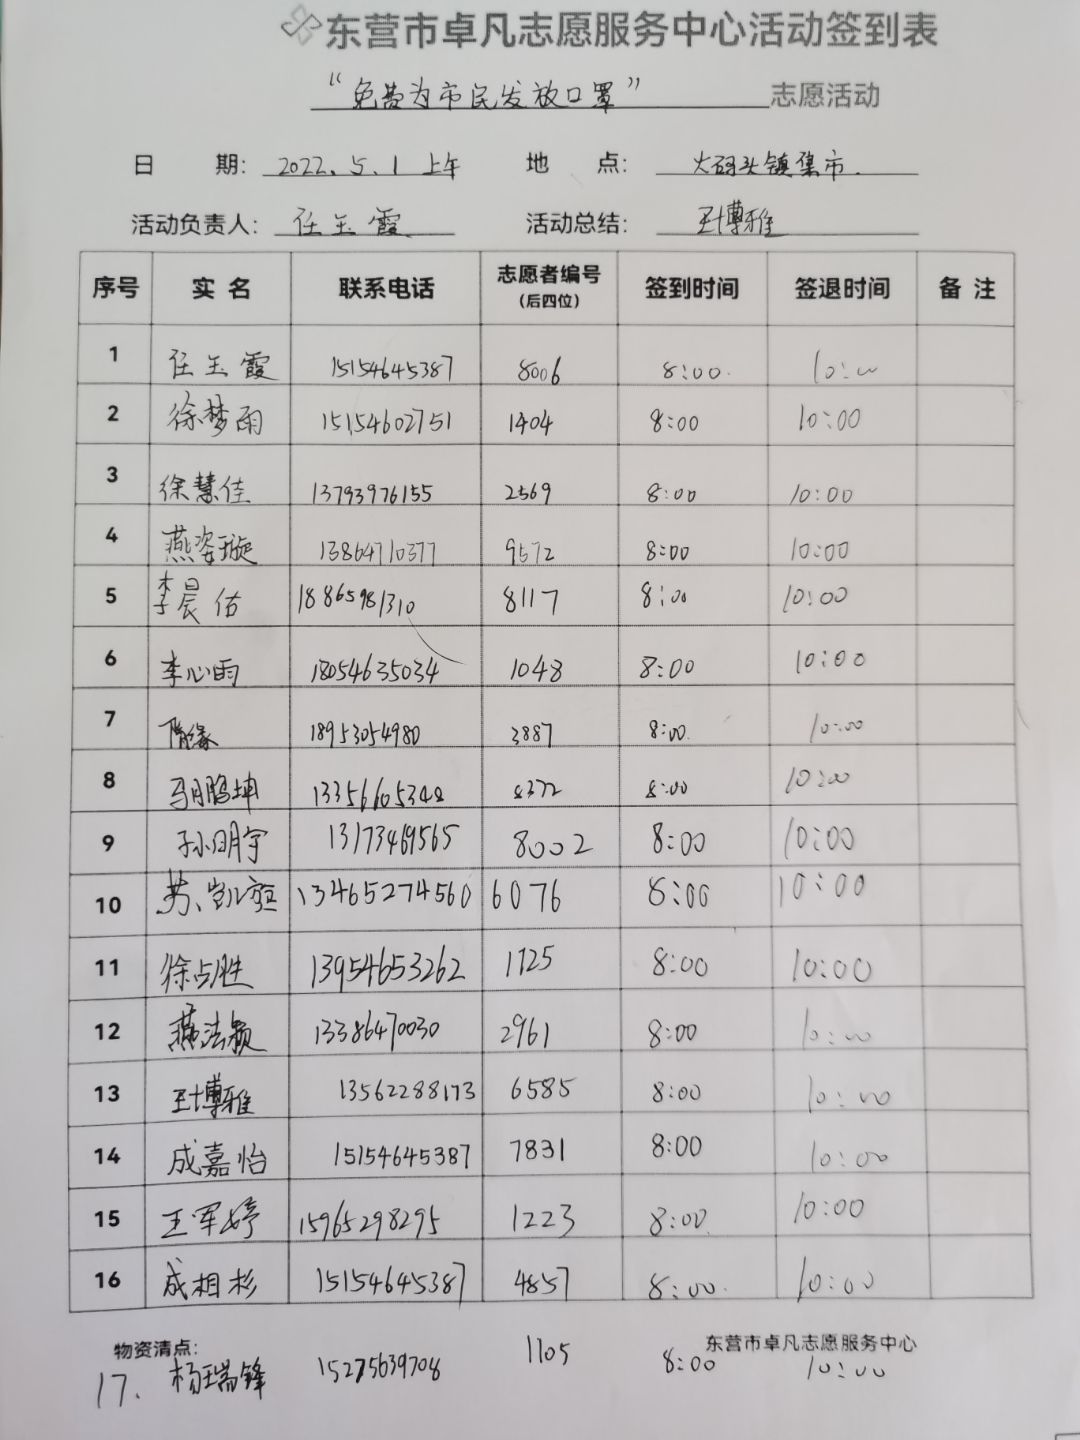 东营市卓凡志愿服务中心活动签到表
“免费为市民发放口罩” 志愿活动
日 期: 2022.5.1上午 地 点: 大码头镇集市.
活动负责人: 任玉霞 活动总结: 王博雅
序号 实名 联系电话 志愿者编号(后四位) 签到时间 签退时间 备注
1 任玉霞 15154645387 8006 8:00. 10:00
2 徐梦雨 15154602751 1404 8:00 10:00
3 徐慧佳 13793976155 2569 8:00 10:00
4 燕姿璇 13864710377 9572 8:00 10:00
5 李晨佑 18865981310 8117 8:00 10:00
6 李心雨 18054635034 1048 8:00 10:00
7 隋缘 18953054980 3887 8:00. 10:00
8 马鹏坤 13356605348 8372 8:00 10:00
9 孙明宇 13173469565 8002 8:00 10:00
10 苏凯 13465274560 6076 8:00 10:00
11 徐占胜 13954653262 1725 8:00 10:00
12 燕法颖 13386470030 2961 8:00 10:00
13 王博雅 13562288173 6585 8:00 10:00
14 成嘉怡 15154645387 7831 8:00 10:00
15 王军婷 15965298295 1223 8:00. 10:00
16 成相杉 15154645387 4857 8:00. 10:00
物资清点: 东营市卓凡志愿服务中心
17. 杨瑞锋 15275639708 1105 8:00 10:00